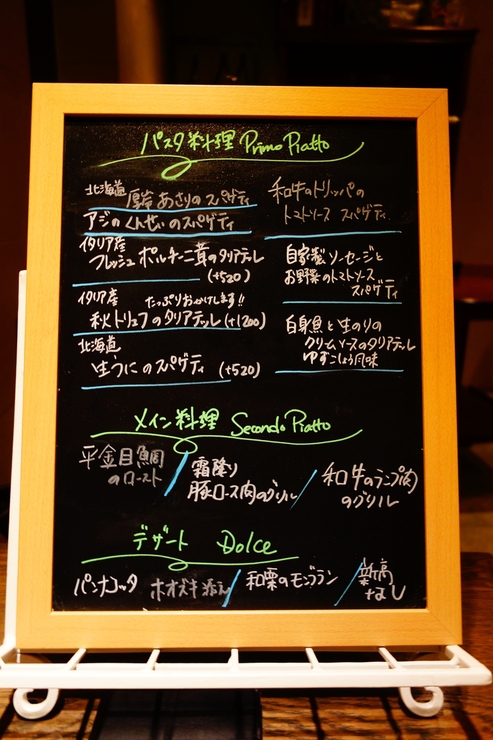 パスタ料理 Primo Piatto
北海道 厚岸あさりのスパゲティ
アジのくんせいのスパゲティ
イタリア産
フレッシュポルチーニ茸のタリアテレ
(+520)
イタリア産 たっぷりおかけします!!
秋トリュフのタリアテッレ(+1200)
北海道
生うにのスパゲティ (+520)
和牛のトリッパの
トマトソース スパゲティ
自家製ソーセージと
お野菜のトマトソース
スパゲティ
白身魚と生のりの
クリームソースのタリアテッレ
ゆずこしょう風味
メイン料理 Secondo Piatto
平金目鯛
のロースト
霜降り
豚ロース肉のグリル
和牛のランプ肉
のグリル
デザート Dolce
パンナコッタ ホオズキ添え
和栗のモンブラン
新高
なし